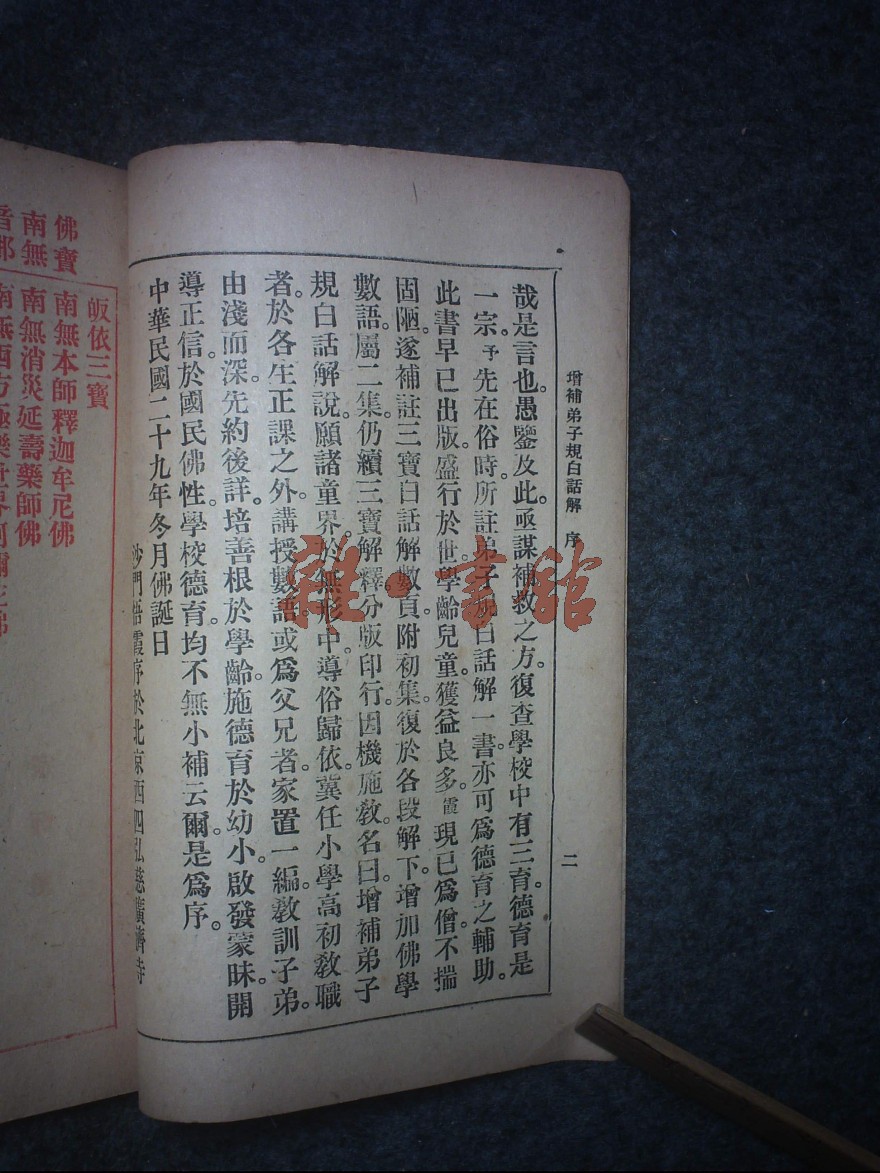 增補弟子規白話解 序
二
哉是言也。愚鑒及此。亟謀補救之方。復查學校中有三育。德育是
一宗。予先在俗時。所註弟子規白話解一書。亦可為德育之輔助。
此書早已出版。盛行於世。學齡兒童。獲益良多。霞現已為僧。不揣
固陋。遂補註三寶白話解數頁。附初集。復於各段解下。增加佛學
數語。屬二集。仍續三寶解釋。分版印行。因機施教。名曰增補弟子
規白話解說。願諸童界於無形中。導俗歸依。冀任小學高初教職
者。於各生正課之外。講授數語。或為父兄者。家置一編。教訓子弟。
由淺而深。先約後詳。培善根於學齡。施德育於幼小。啟發蒙昧。開
導正信。於國民佛性。學校德育。均不無小補云爾。是為序。
中華民國二十九年冬月佛誕日
沙門悟霞序於北京西四弘慈廣濟寺
皈依三寶
佛寶
南無本師釋迦牟尼佛
南無
南無消災延壽藥師佛
雜·書館